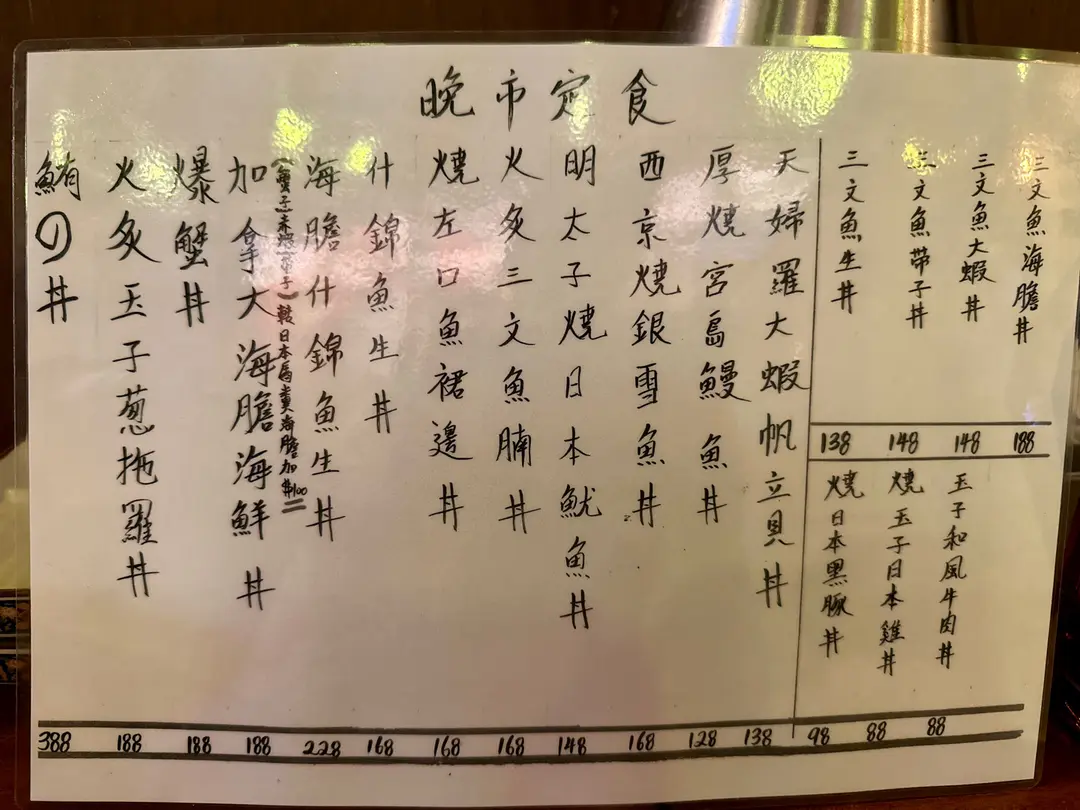 晚市定食
三文魚海膽丼
三文魚大蝦丼
三文魚帶子丼
三文魚生丼
138 148 148 188
玉子和風牛肉丼
燒玉子日本雞丼
燒日本黑豚丼
天婦羅大蝦帆立貝丼
厚燒宮島鰻魚丼
西京燒銀雪魚丼
明太子燒日本魷魚丼
火炙三文魚腩丼
燒左口魚裙邊丼
什錦魚生丼
海膽什錦魚生丼
轉日本馬糞海膽加$100
加拿大海膽海鮮丼
爆蟹丼
火炙玉子葱拖羅丼
鮪の丼
388 188 188 188 228 168 168 168 148 168 128 138 98 88 88